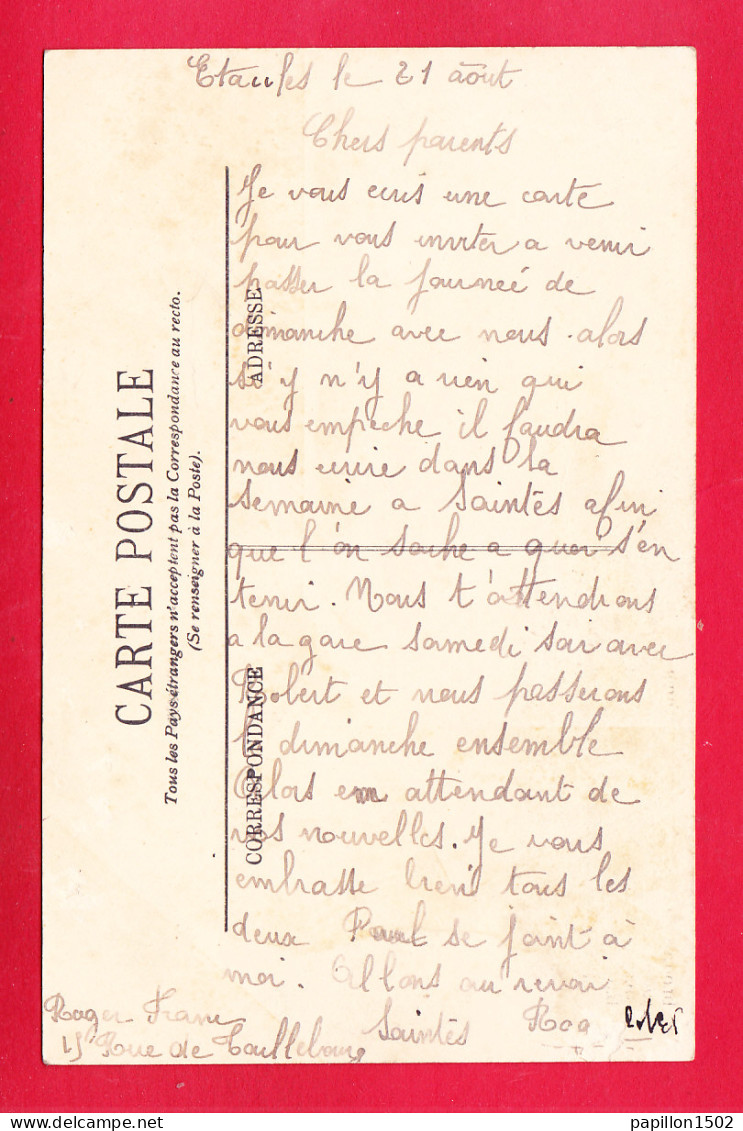 Etaules le 21 août
Chers parents
Je vous ecris une carte
pour vous inviter a venir
passer la journeé de
dimanche avec nous. alors
s'i y n'y a rien qui
vous empeche il faudra
nous ecrire dans la
semaine a Saintes afin
que l'on sache a quoi s'en
tenir. Nous t'attendrons
a la gare samedi soir avec
Robert et nous passerons
le dimanche ensemble
Alors en attendant de
vos nouvelles. Je vous
embrasse bien tous les
deux Paul se joint à
moi. Allons au revoir
Roger
15 Rue de Taillebourg
Saintes
CARTE POSTALE
Tous les Pays étrangers n'acceptent pas la Correspondance au recto.
(Se renseigner à la Poste).
CORRESPONDANCE
ADRESSE
papillon1502